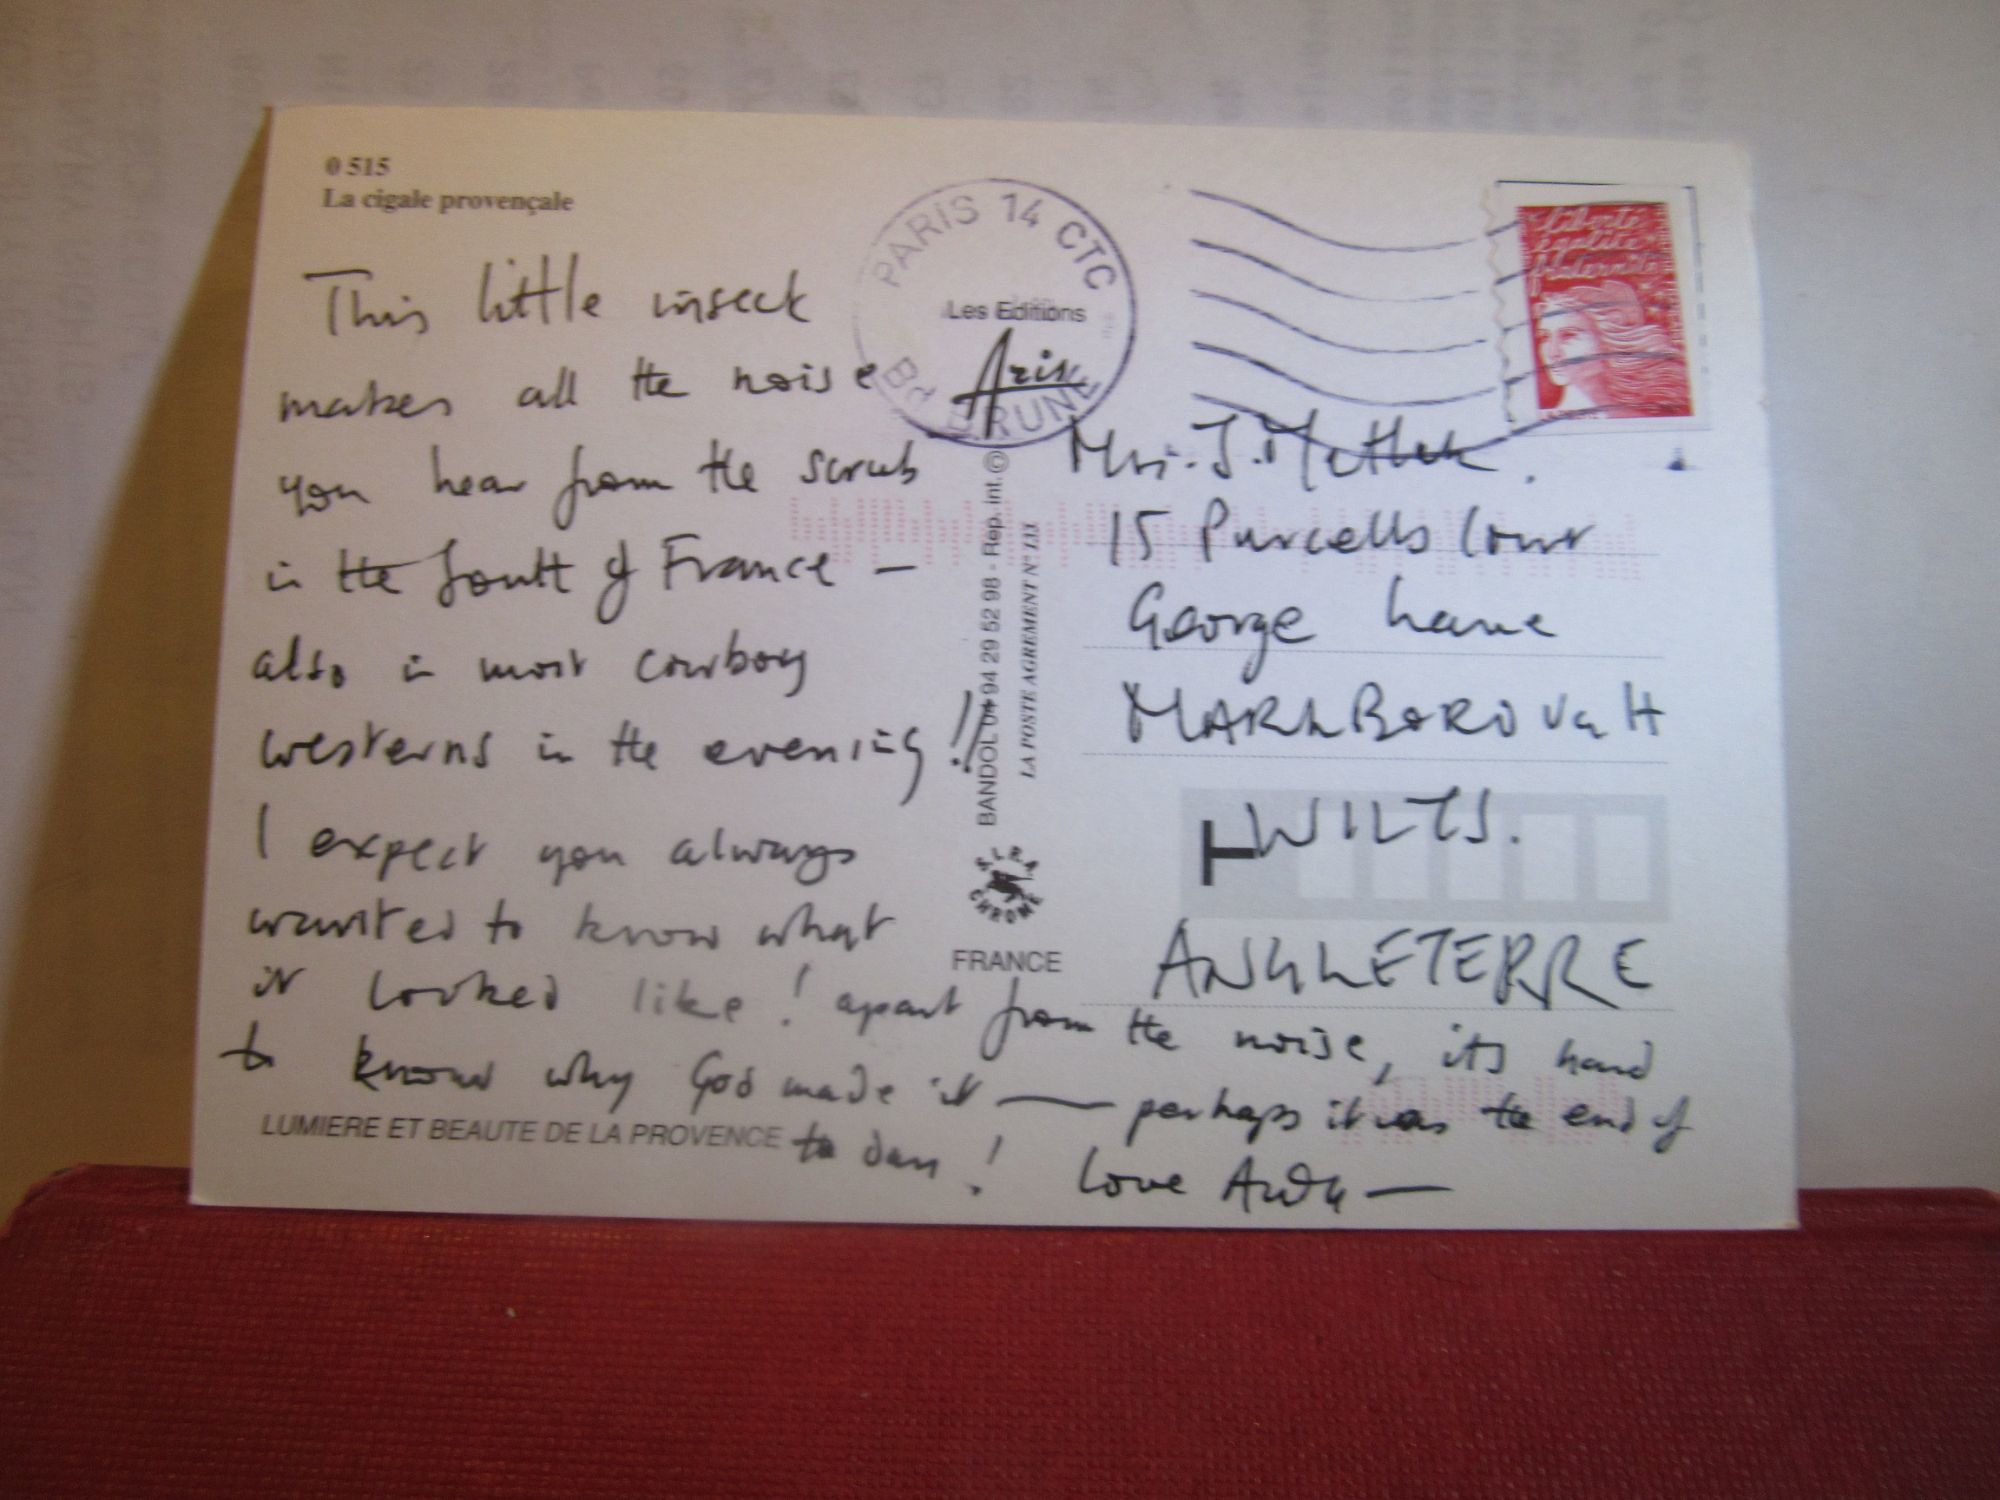 0 515
La cigale provençale
This little insect
makes all the noise
you hear from the scrub
in the South of France —
also in most cowboy
westerns in the evening!!
I expect you always
wanted to know what
it looked like! apart from the noise, its hard
to know why God made it — perhaps it was the end of
to day! Love Andy —
LUMIERE ET BEAUTE DE LA PROVENCE
PARIS 14 CTC
Bd BRUNE
Les Editions
Aris
BANDOL 04 94 29 52 98 - Rep. int. ©
LA POSTE AGREMENT N° 133
CHROME
FRANCE
Liberté
égalité
fraternité
Mrs. J.
15 Purcells Court
George Lane
MARLBOROUGH
WILTS.
ANGLETERRE